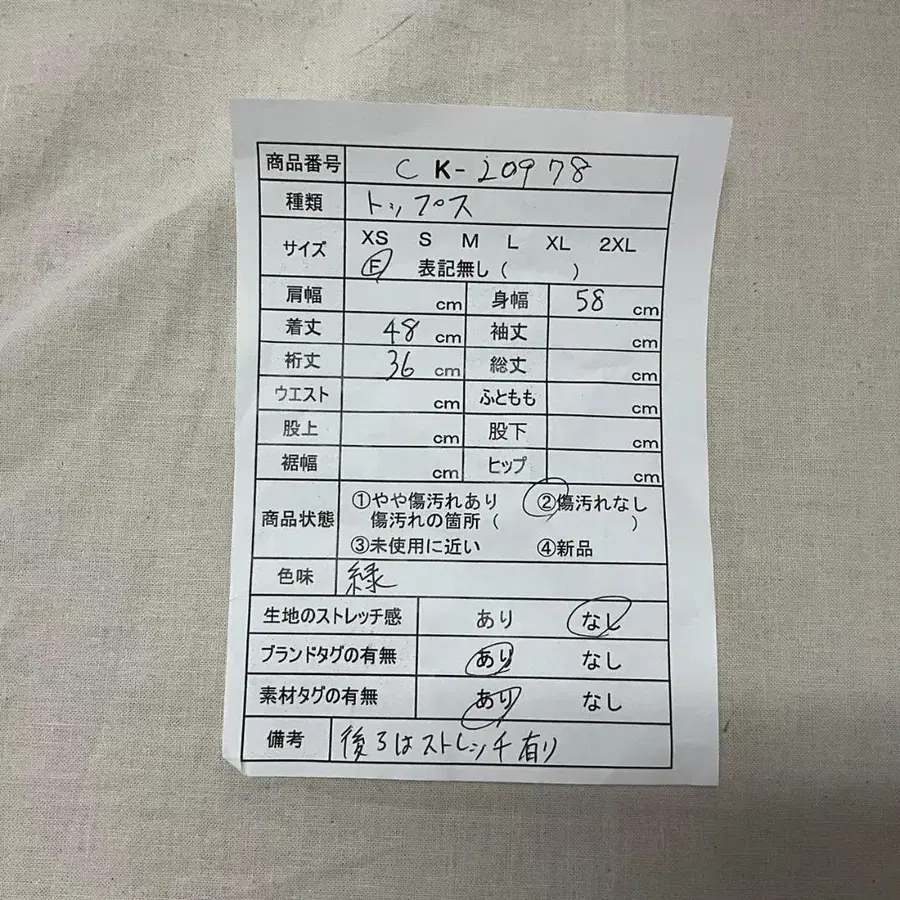 商品番号 CK-20978
種類 トップス
サイズ XS S M L XL 2XL
F 表記無し( )
肩幅 cm 身幅 58 cm
着丈 48 cm 袖丈 cm
裄丈 36 cm 総丈 cm
ウエスト cm ふともも cm
股上 cm 股下 cm
裾幅 cm ヒップ cm
商品状態 ①やや傷汚れあり ②傷汚れなし
傷汚れの箇所( )
③未使用に近い ④新品
色味 緑
生地のストレッチ感 あり なし
ブランドタグの有無 あり なし
素材タグの有無 あり なし
備考 後ろはストレッチ有り